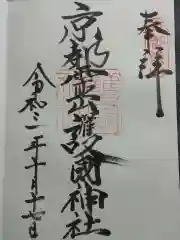 奉拝
京都霊山護國神社
令和二年十月十七日